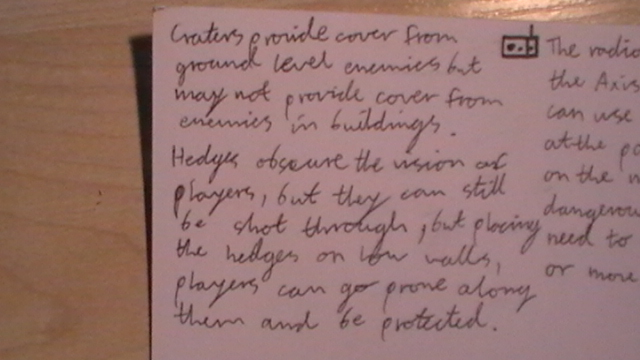 Craters provide cover from
ground level enemies but
may not provide cover from
enemies in buildings.
Hedges obscure the vision of
players, but they can still
be shot through, but placing
the hedges on low walls,
players can go prone along
them and be protected.
The radio
the Axis
can use
at the
on the
need to
or more